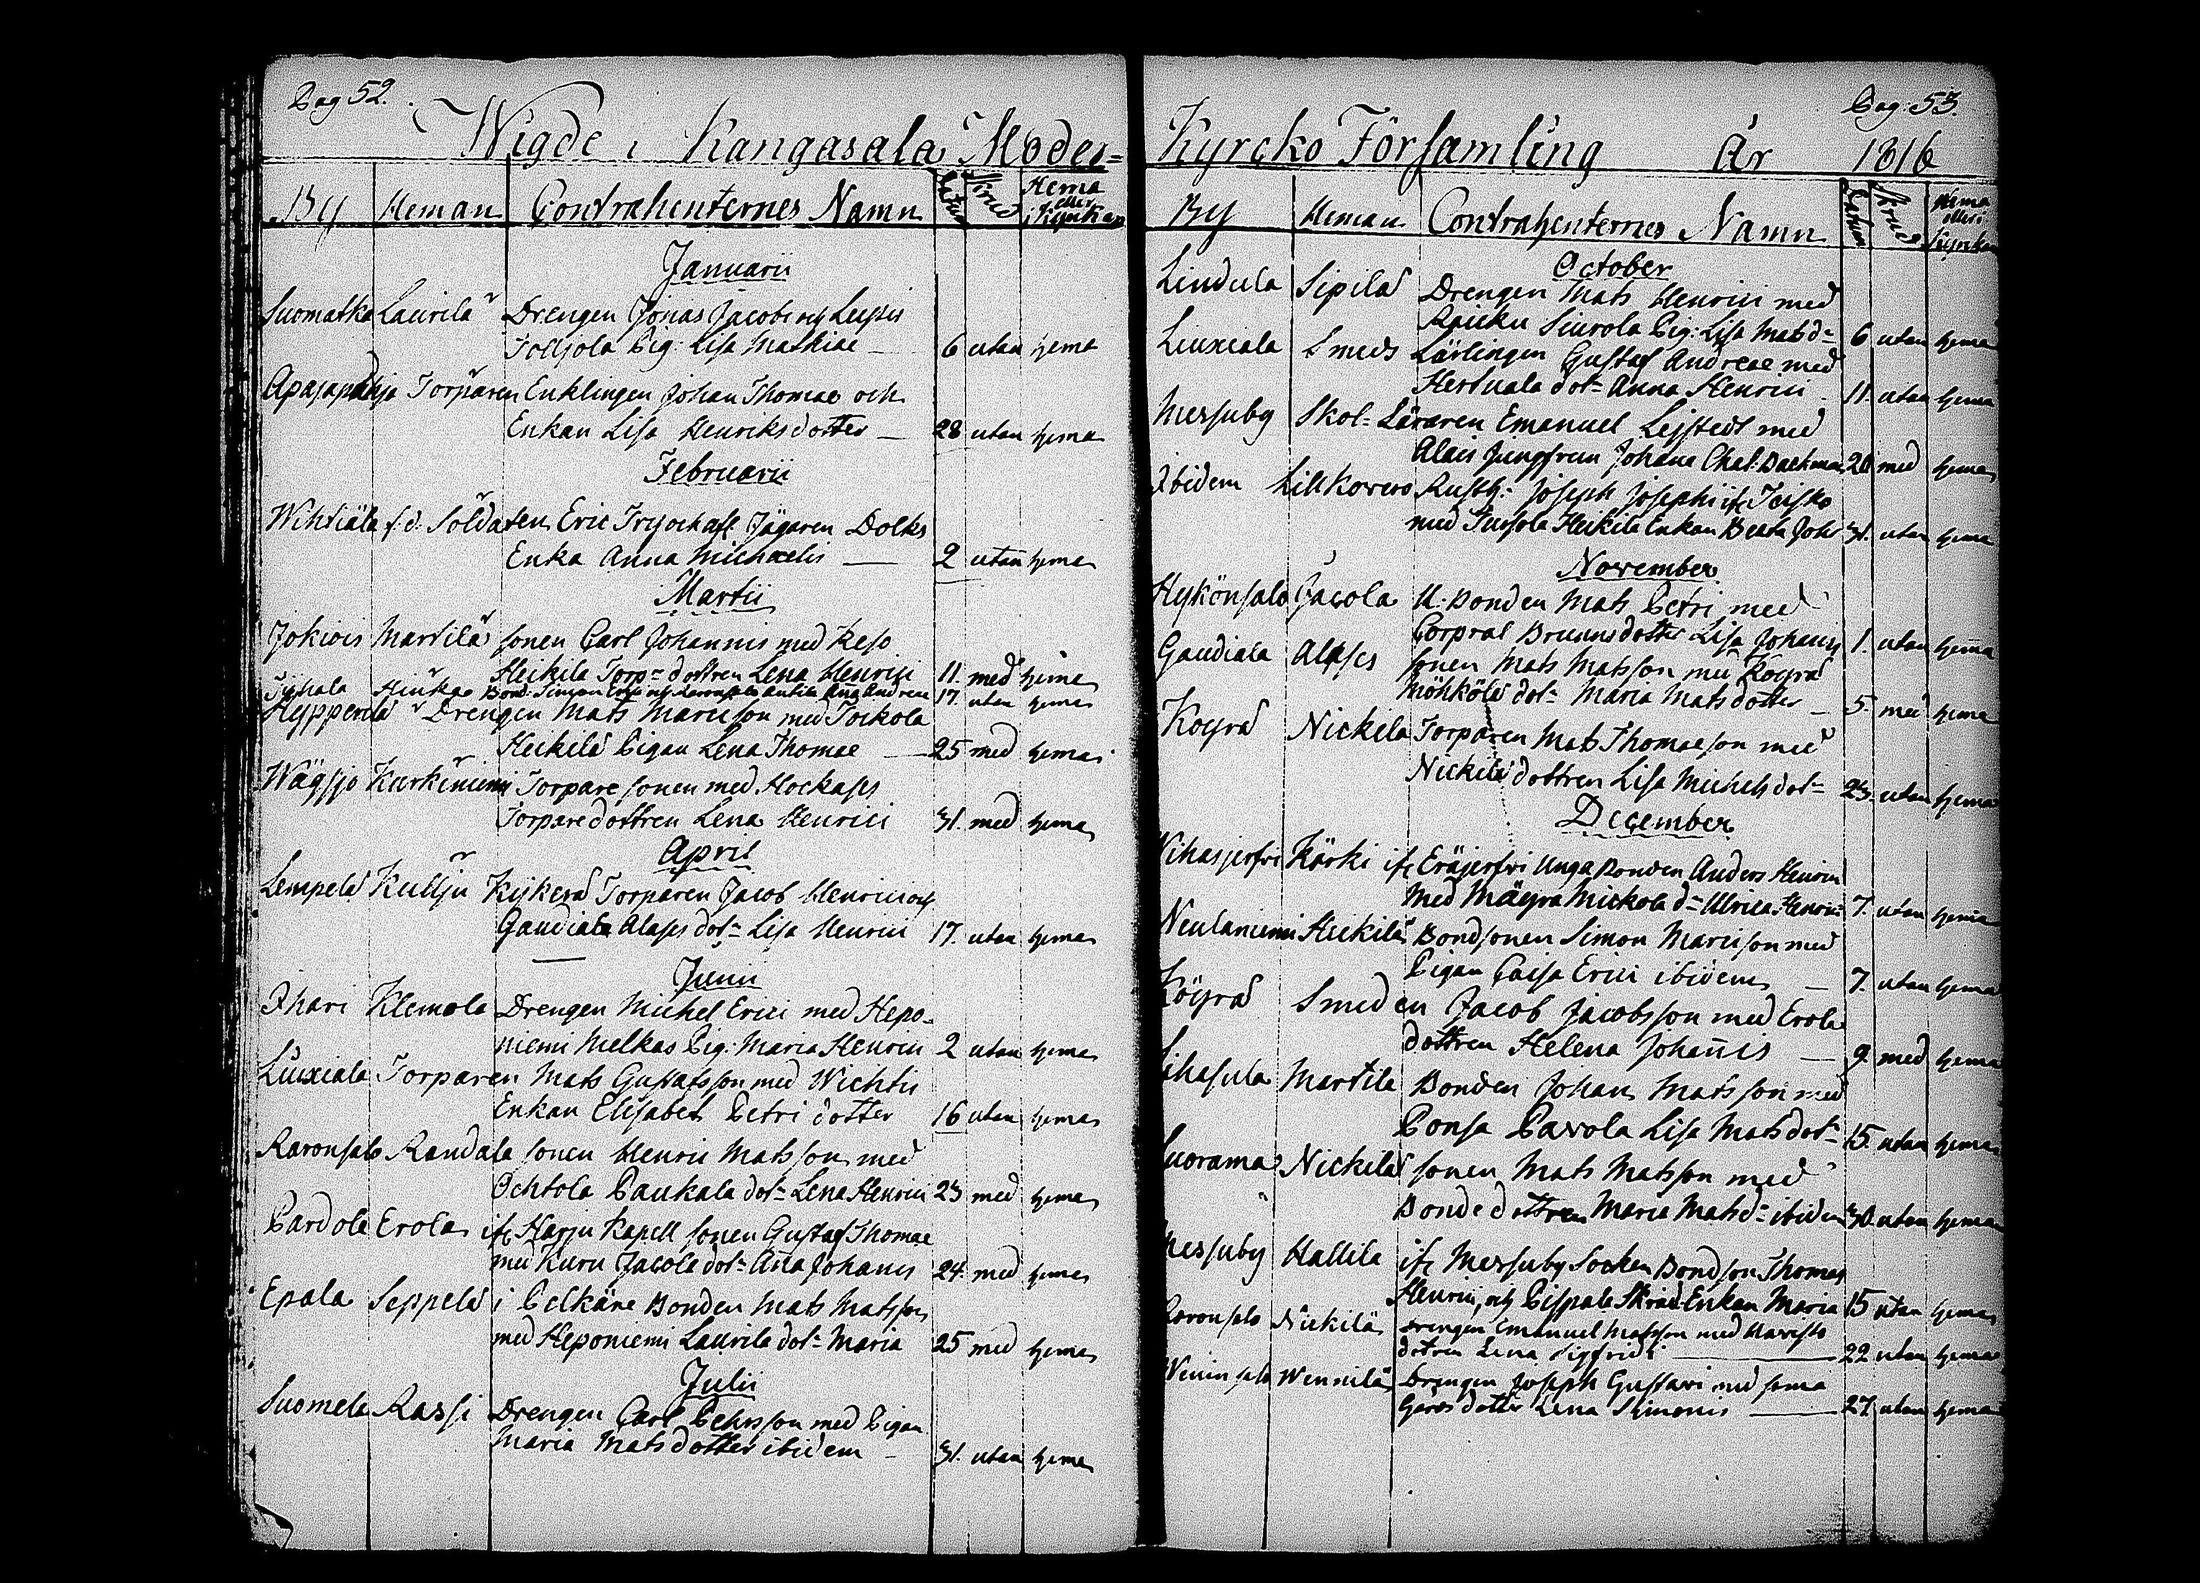 Pag 52.
Wigde i Kangasala Moder=
By Heman Contrahenternes Namn Datum Skrud Hema eller i Kyrkan
Januarii
Suomatka Laurila Drengen Jonas Jacobi och
Tolljola Pig: Lisa Mathiae — 6 utan hema
Torparen Enklingen Johan Thomae och
Enkan Lisa Henriksdotter — 28 utan hema
Februarii
Wihtiälä f: d: Soldaten Eric och afl Jägaren Dolks
Enka Anna Michaelis — 2 utan hema
Martii
Jokiois Martila sonen Carl Johannis med Keso
Heikila Torp= dottren Lena Henrici 11. med hema
Bond: Simon och Antila Aña Andreae 17. utan hema
Hypperilä Drengen Mats Marcusson med Tockola
Heikilä Pigan Lena Thomae — 25 med hema
Wägsjö Kurkiniemi Torpare sonen med Hockases
Torpare dottren Lena Henrici 31. med hema
April
Lempelä Kullju Kijkerä Torparen Jacob Henrici och
Gaudiala Alases dot= Lisa Henrici 17. utan hema
Junii
Ihari Klemola Drengen Michel Erici med Hepo-
niemi Melkas Pig: Maria Henrici 2 utan hema
Liuxiala Torparen Mats Gustafsson med Wichtis
Enkan Elisabet Petri dotter 16 utan hema
Raronsalo Randala sonen Henric Matsson med
Ochtola Paukala dot= Lena Henrici 23 med hema
Pardola Erola ifr Harju Kapell sonen Gustaf Thomae
med Kuru Jacola dot= Aña Johanis 24. med hema
Epala Seppelä i Pelkäne Bonden Mats Matsson
med Heponiemi Laurila dot= Maria 25 med hema
Julii
Suomela Rassi Drengen Carl Pehrsson med Pigan
Maria Mats dotter ibidem — 31. utan hema
Pag. 53.
Kyrcko Församling År 1816
By Heman Contrahenternes Namn Datum Skrud Hema eller i Kyrkan
October
Liudula Sipilä Drengen Mats Henrici med
Raicku Siurola Pig: Lisa Matsd= 6 utan hema
Liuxiala Smeds Lärlingen Gustaf Andreae med
Hertuala dot= Anna Henrici 11. utan hema
Messuby Skol= Läraren Emanuel Lejstedt med
Jungfrun Johana Backman 20 med hema
Ibidem Lillkovero Rusth: Joseph Josephi ifr Teisko
med Heikila Enkan Beata Joh: 31. utan hema
November
Hykönsalo Jacola U: Bonden Mats Petri med
Corpral Bruuns dotter Lisa Johans 1. utan hema
Gaudiala Alases sonen Mats Matsson med Koyrä
Möhkölä dot= Maria Mats dotter — 5. med hema
Koyrä Nickila Torparen Mats Thomaeson med
Nickilä dottren Lisa Michels dot= 23. utan hema
December
Wihasjerfvi Körki ifr Eräjerfvi Unga Bonden Anders Henrici
med Mäyrä Mickola d= Ulrica Henrici 7. utan hema
Neulaniemi Heikilä Bondsonen Simon Marcisson med
Pigan Caisa Erici ibidem — 7. utan hema
Köyrä Smeden Jacob Jacobsson med Erola
dottren Helena Johañis — 9 med hema
Lihasula Martila Bonden Johan Matsson med
Ponsa Pavola Lisa Mats dot= 15. utan hema
Suorama Nickilä sonen Mats Matsson med
Bonde dottren Maria Matsd= ibidem 30. utan hema
Messuby Hallila ifr Messuby Socken Bondson Thomas
Henrici, och Pispala Enkan Maria 15 utan hema
Raronsalo Nickilä Drengen Emanuel Matsson med
dotren Lena Sigfridi — 22 utan hema
Wennilä Drengen Joseph Gustavi med sama
Gårds dotter Lena Simonis — 27 utan hema